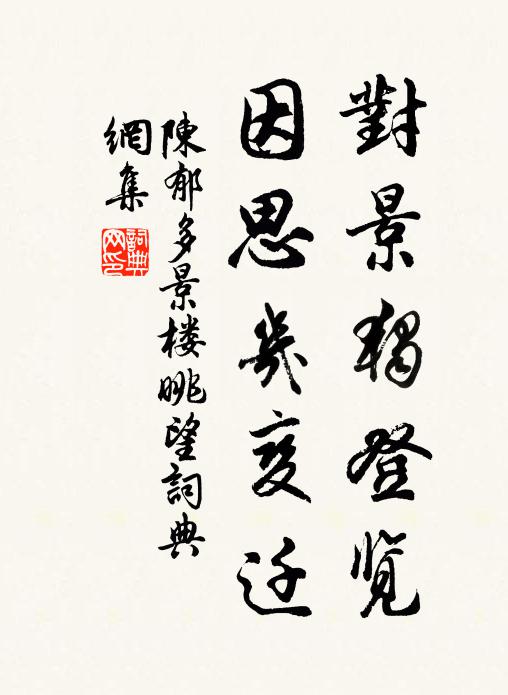 對景獨登覽
因思幾變迁
陳郁多景楼眺望詞典
網集
詞典
网印